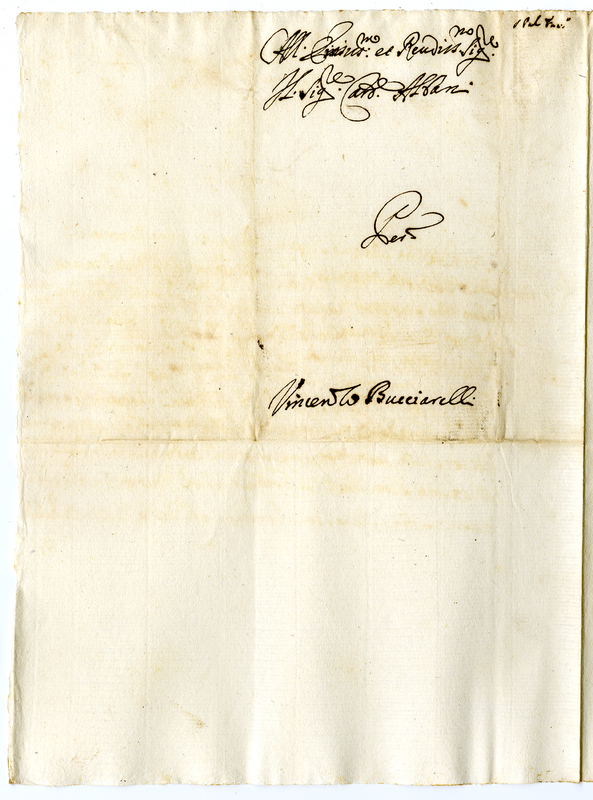 All. Eminmo. et Revdissmo Sigre.
Il Sigre. Card. Albani
Per
Vincenzo Bucciarelli